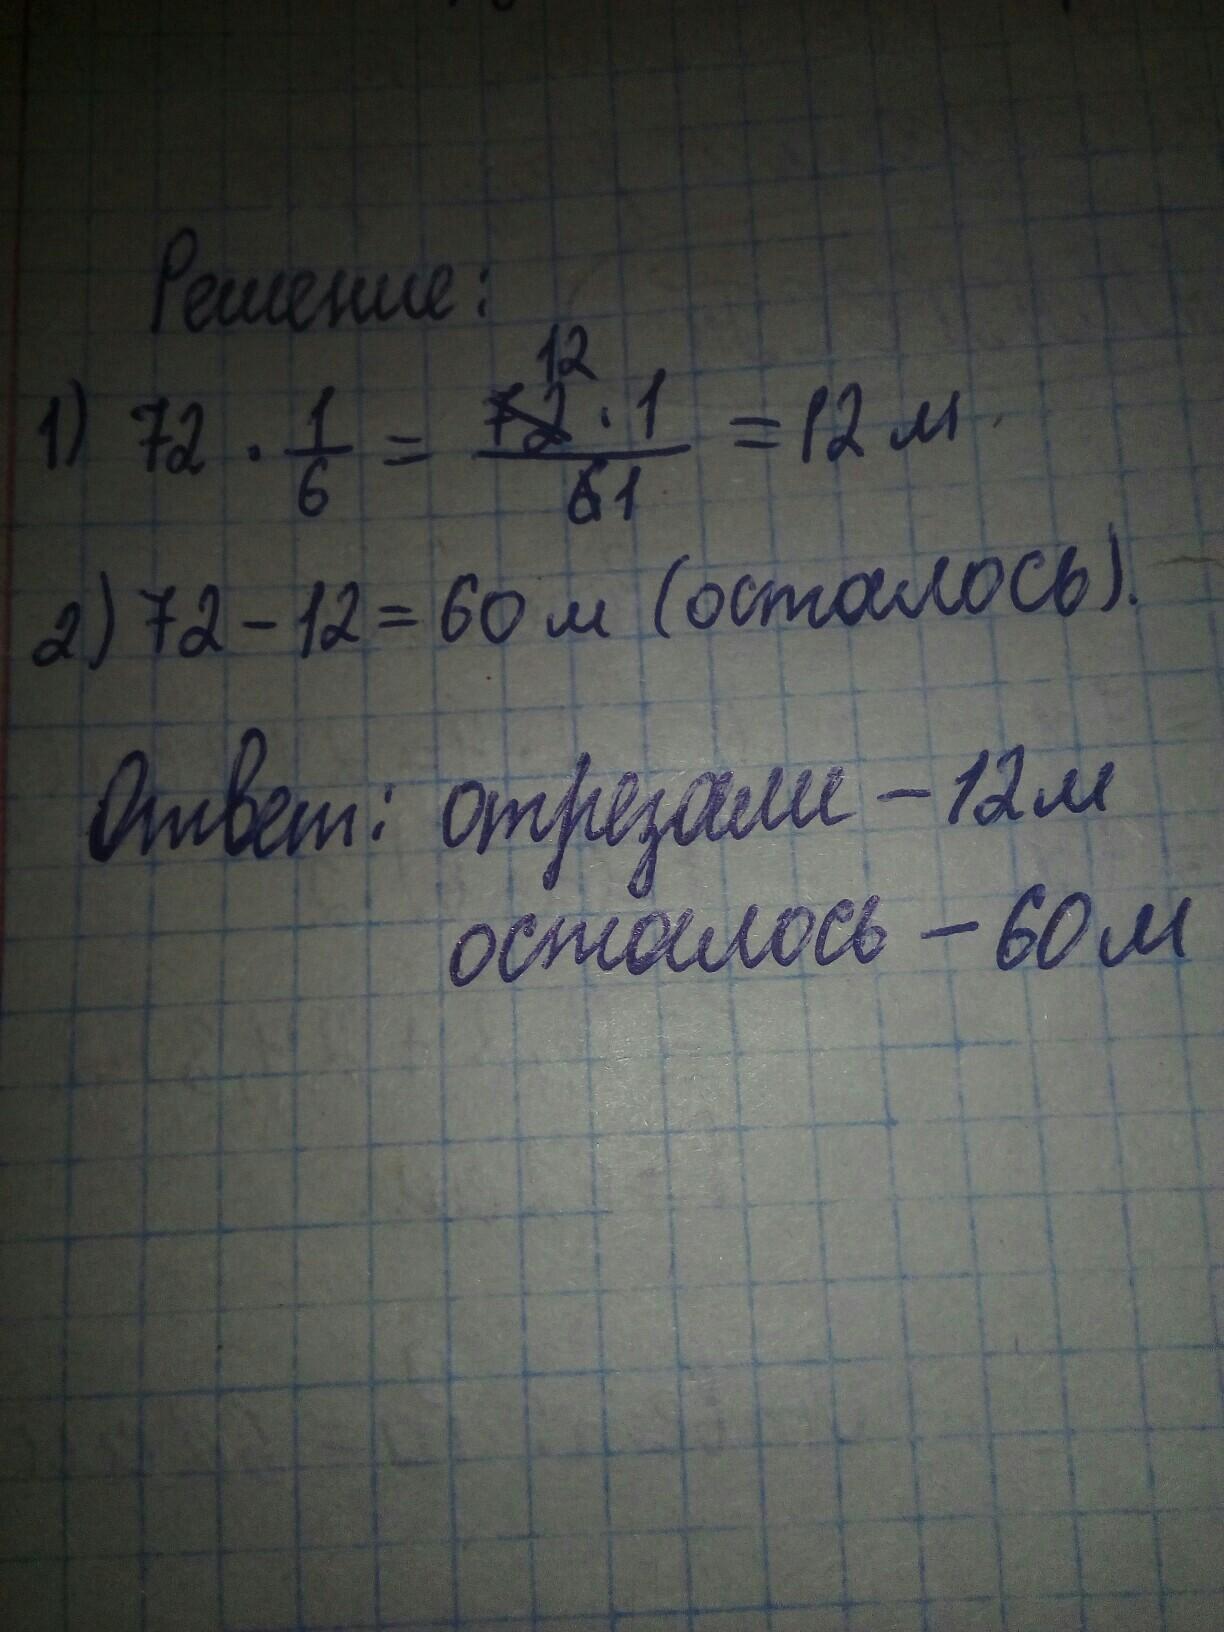 Решение:
1) 72 · 1/6 = 72 12 · 1 / 6 1 = 12 м.
2) 72 - 12 = 60 м (осталось).
Ответ: отрезали - 12 м
осталось - 60 м